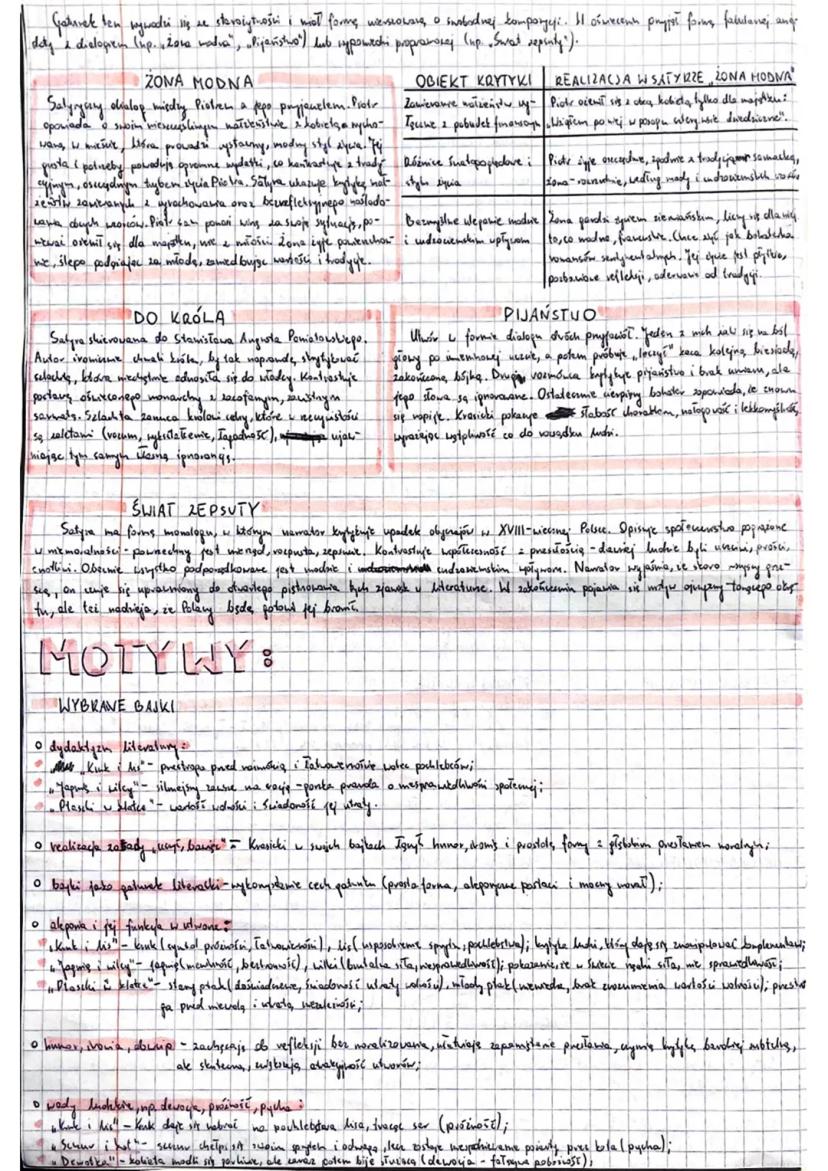 Gatunek ten wywodzi się ze starożytności i miał formę wierszowaną o swobodnej kompozycji. W oświeceniu przyjął formę fabularnej aneg-
doty z dialogiem (np. "Żona modna", "Pijaństwo") lub wypowiedzi programowej (np. "Świat zepsuty").
ŻONA MODNA
Satyryczny dialog między Piotrem a jego przyjacielem. Piotr
opowiada o swoim nieszczęśliwym małżeństwie z kobietą wycho-
waną w mieście, która prowadzi wystawny, modny styl życia. Jej
gusta i potrzeby powodują ogromne wydatki, co kontrastuje z trady-
cyjnym, oszczędnym trybem życia Piotra. Satyra ukazuje krytykę mał-
żeństw zawieranych z wyrachowania oraz bezrefleksyjnego naślado-
wania obcych wzorców. Piotr sam ponosi winę za swoją sytuację, po-
nieważ ożenił się dla majątku, nie z miłości. Żona żyje powierzchow-
nie, ślepo podążając za modą, zaniedbując wartości i tradycje.
OBIEKT KRYTYKI
REALIZACJA W SATYRZE "ŻONA MODNA"
Zawieranie małżeństw wy-
łącznie z pobudek finansowych
Piotr ożenił się z obcą kobietą tylko dla majątku:
"Wziąłem po niej w posagu cztery wsie dziedziczne".
Różnice światopoglądowe i
stylu życia
Piotr żyje oszczędnie, zgodnie z tradycjami sarmackimi,
żona - rozrzutnie, według mody i cudzoziemskich wzorców
Bezmyślne uleganie modzie
i cudzoziemskim wpływom
Żona gardzi życiem ziemiańskim, liczy się dla niej
to, co modne, francuskie. Chce żyć jak bohaterka
romansów sentymentalnych. Jej życie jest płytkie,
pozbawione refleksji, oderwane od tradycji.
DO KRÓLA
Satyra skierowana do Stanisława Augusta Poniatowskiego.
Autor ironicznie chwali króla, by tak naprawdę skrytykować
szlachtę, która niechętnie odnosiła się do władcy. Kontrastuje
postawę oświeconego monarchy z zacofanym, zawistnym
sarmatą. Szlachta zarzuca królowi cechy, które w rzeczywistości
są zaletami (rozum, wykształcenie, łagodność), ujaw-
niając tym samym własną ignorancję.
PIJAŃSTWO
Utwór w formie dialogu dwóch przyjaciół. Jeden z nich żali się na ból
głowy po imieninowej uczcie, a potem próbuje "leczyć" kaca kolejną biesiadą,
zakończoną bójką. Drugi rozmówca krytykuje pijaństwo i brak umiaru, ale
jego słowa są ignorowane. Ostatecznie cierpiący bohater zapowiada, że znowu
się napije. Krasicki pokazuje słabość charakteru, nałogowość i lekkomyślność,
wyrażając wątpliwość co do rozsądku ludzi.
ŚWIAT ZEPSUTY
Satyra ma formę monologu, w którym narrator krytykuje upadek obyczajów w XVIII-wiecznej Polsce. Opisuje społeczeństwo pogrążone
w niemoralności - powszechny jest nierząd, rozpusta, zepsucie. Kontrastuje współczesność z przeszłością - dawniej ludzie byli uczciwi, prości,
cnotliwi. Obecnie wszystko podporządkowane jest modzie i cudzoziemskim wpływom. Narrator wyjaśnia, że skoro wszyscy grze-
szą, on czuje się uprawniony do otwartego piętnowania tych zjawisk w literaturze. W zakończeniu pojawia się motyw ojczyzny-tonącego okrę-
tu, ale też nadzieja, że Polacy będą gotowi jej bronić.
MOTYWY:
WYBRANE BAJKI
o dydaktyzm literatury:
"Kruk i lis" - przestroga przed naiwnością i łatwowiernością wobec pochlebców;
"Jagnię i wilcy" - silniejszy zawsze ma rację - gorzka prawda o niesprawiedliwości społecznej;
"Ptaszki w klatce" - wartość wolności i świadomość jej utraty.
o realizacja zasady "uczyć, bawiąc" - Krasicki w swoich bajkach łączył humor, ironię i prostotę formy z głębokim przesłaniem moralnym;
o bajki jako gatunek literacki - wykorzystanie cech gatunku (prosta forma, alegoryczne postaci i mocny morał);
o alegoria i jej funkcja w utworze:
"Kruk i lis" - kruk (symbol próżności, łatwowierności), lis (uosobienie sprytu, pochlebstwa); krytyka ludzi, którzy dają się zmanipulować komplementami;
"Jagnię i wilcy" - jagnię (niewinność, bezbronność), wilki (brutalna siła, niesprawiedliwość); pokazanie, że w świecie rządzi siła, nie sprawiedliwość;
"Ptaszki w klatce" - stary ptak (doświadczenie, świadomość utraty wolności), młody ptak (niewiedza, brak zrozumienia wartości wolności); przestro-
ga przed niewolą i utratą niezależności;
o humor, ironia, dowcip - zachęcają do refleksji bez moralizowania, ułatwiają zapamiętanie przesłania, czynią krytykę bardziej subtelną,
ale skuteczną, zwiększają atrakcyjność utworów;
o wady ludzkie, np. dewocja, próżność, pycha:
"Kruk i lis" - kruk daje się nabrać na pochlebstwa lisa, tracąc ser (próżność);
"Szczur i kot" - szczur chełpi się swoim sprytem i odwagą, lecz zostaje niespodziewanie pożarty przez kota (pycha);
"Dewotka" - kobieta modli się gorliwie, ale zaraz potem bije służącą (dewocja - fałszywa pobożność);